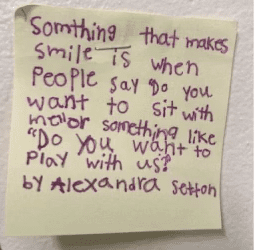 Somthing that makes
smile is when
People say Do you
want to sit with
me/or something like
"Do you want to
Play with us?
by Alexandra Setton